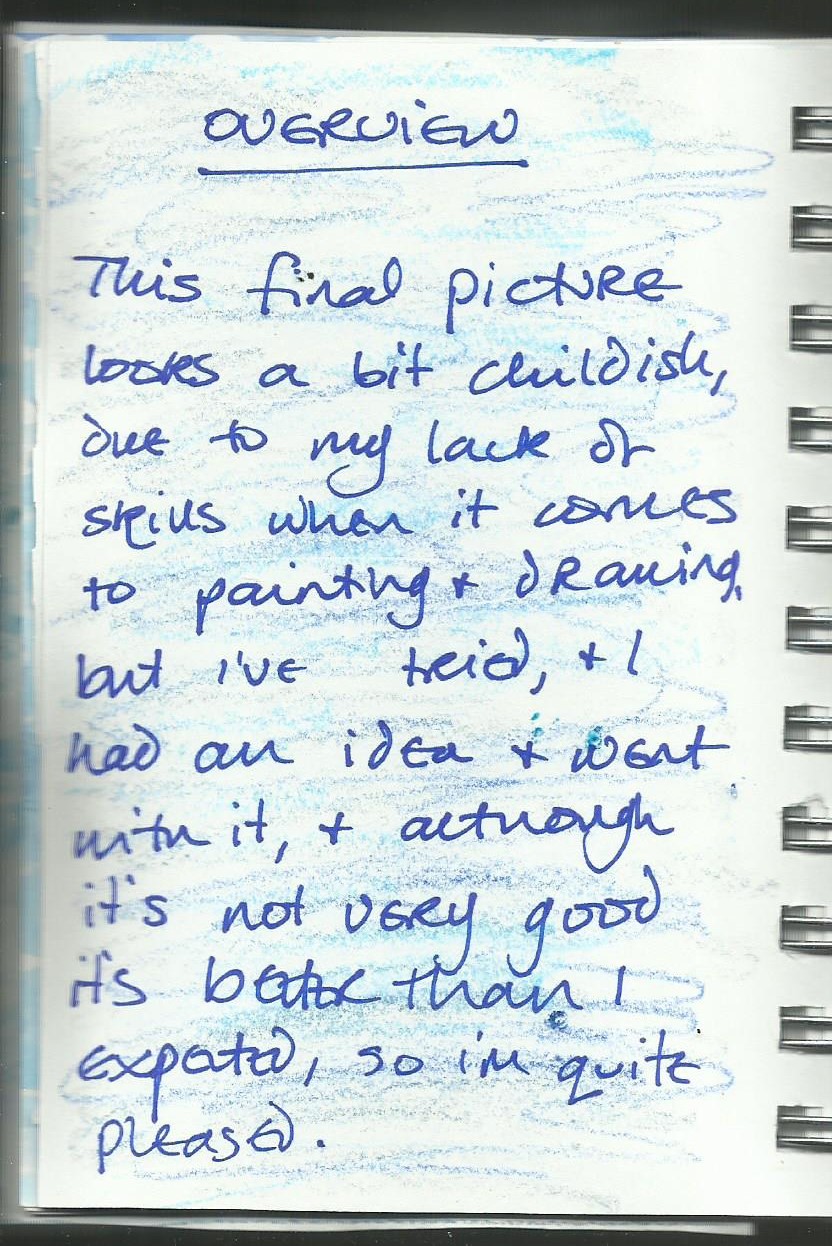 OVERVIEW
This final picture
looks a bit childish,
due to my lack of
skills when it comes
to painting & drawing,
but I've tried, & I
had an idea & went
with it, & although
it's not very good
it's better than I
expected, so i'm quite
pleased.